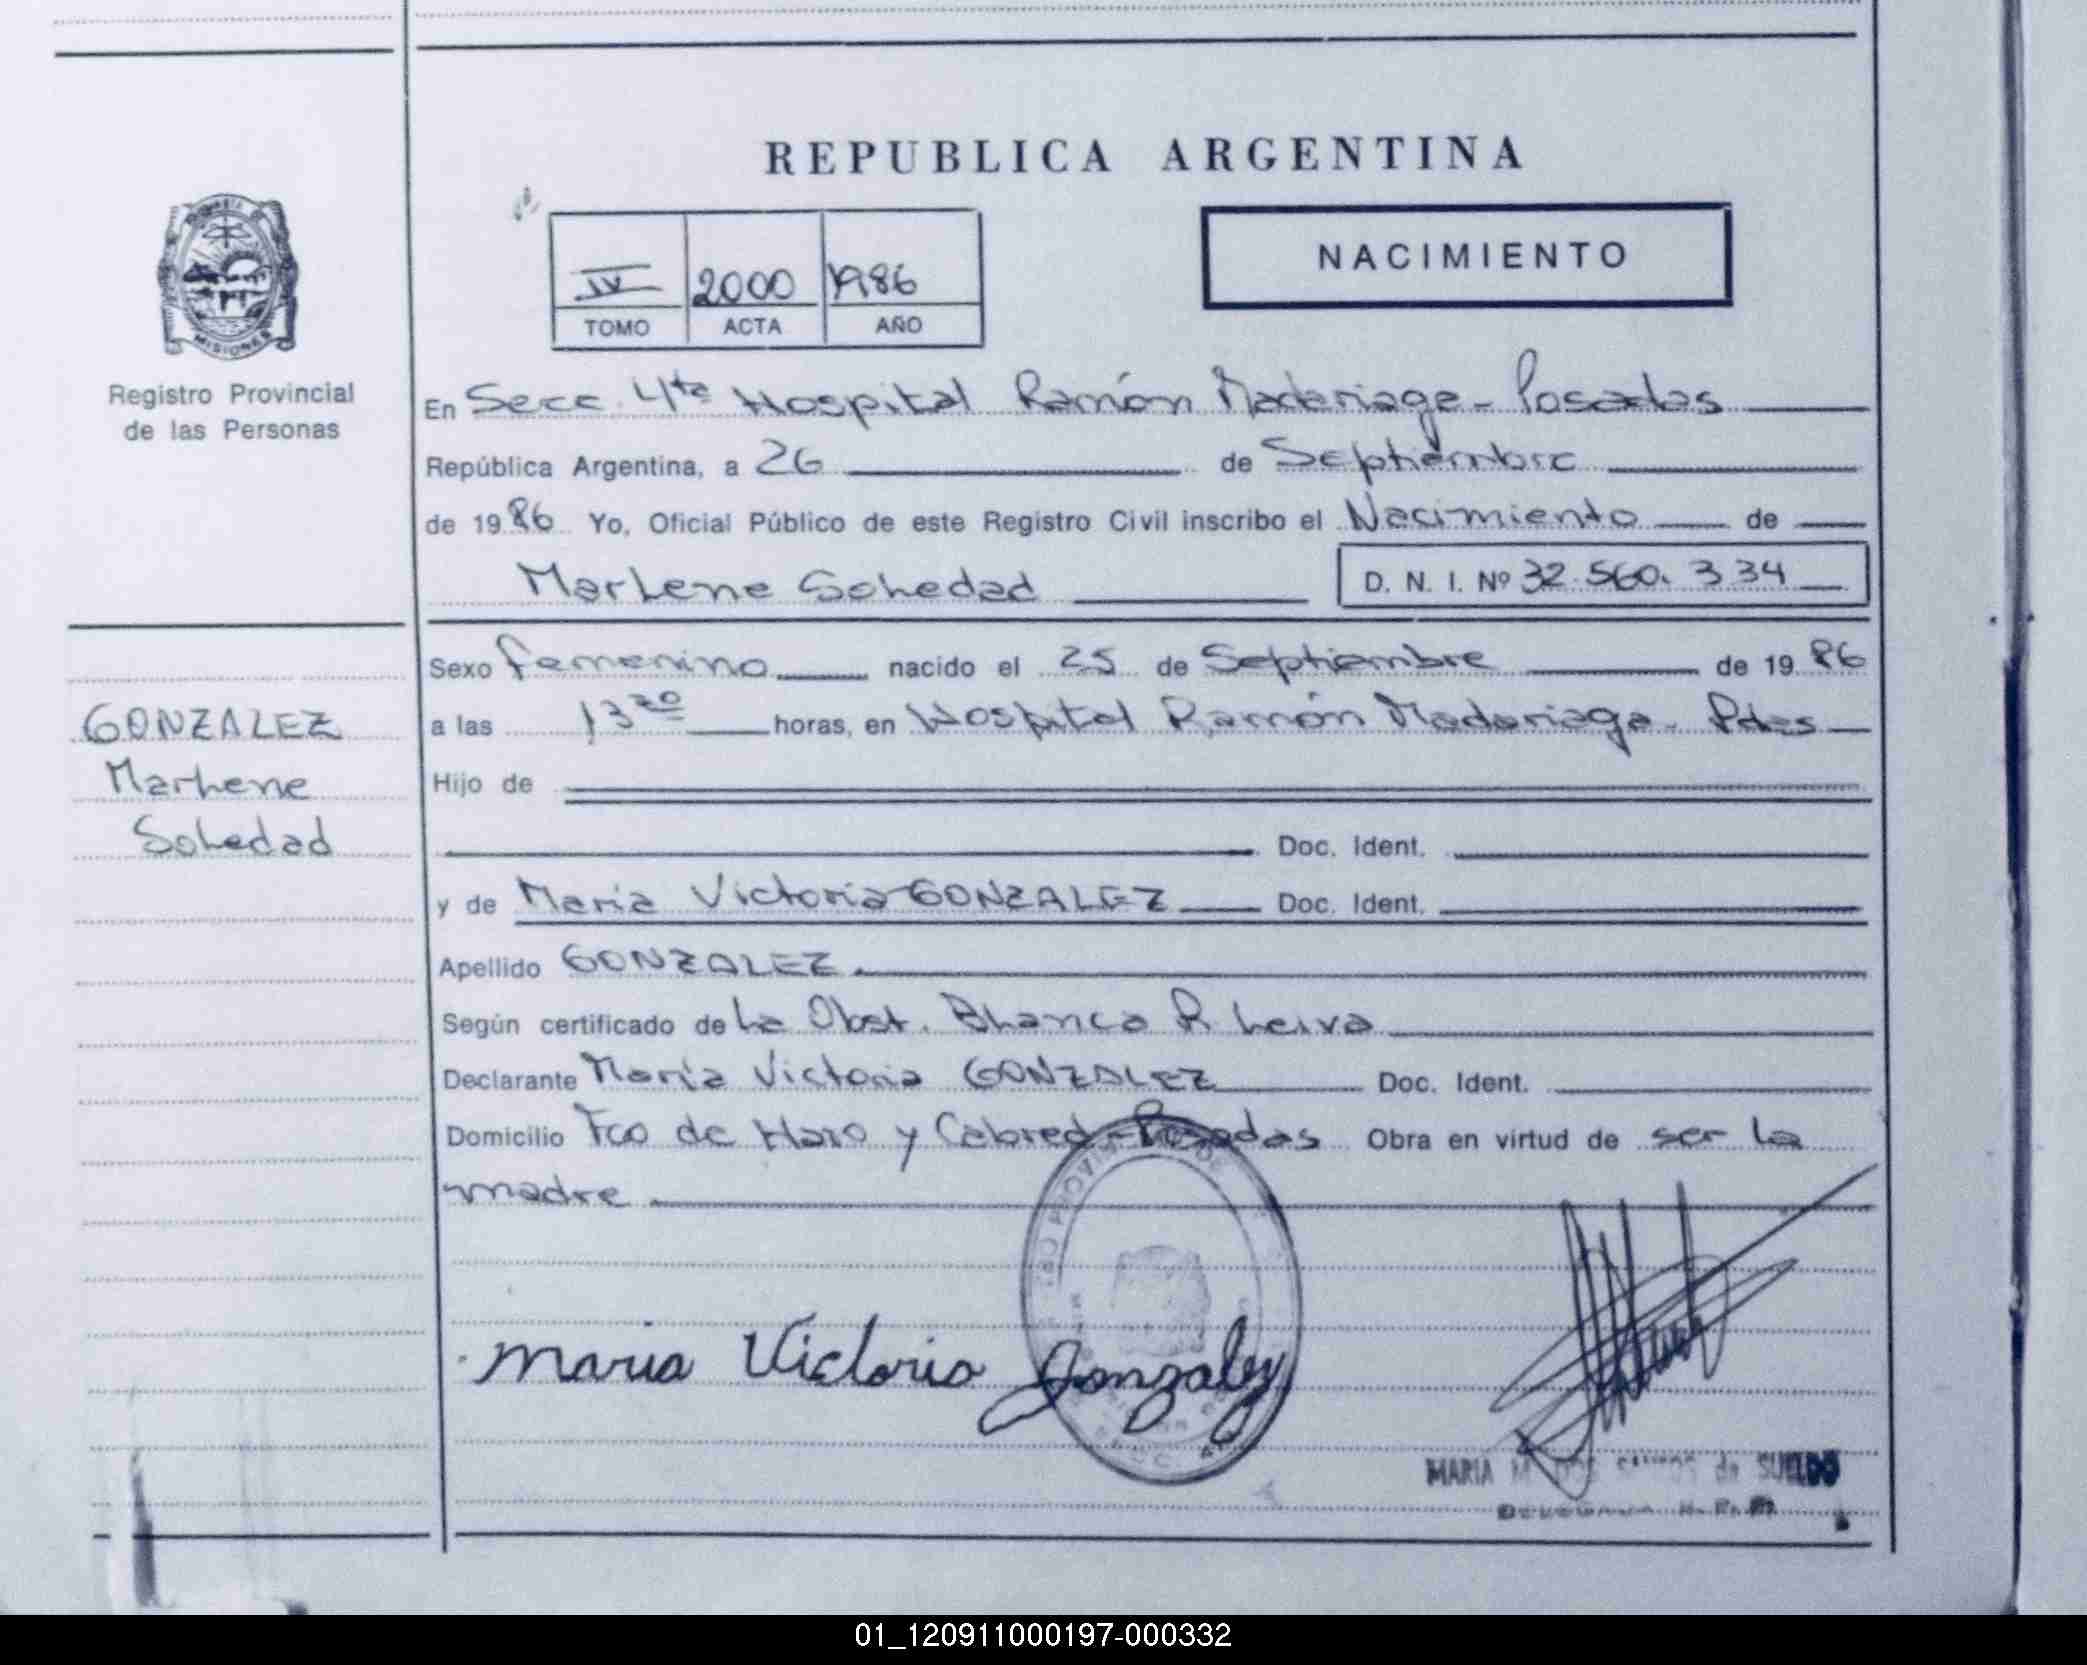 REPUBLICA ARGENTINA
NACIMIENTO
IV 2000 1986
TOMO ACTA AÑO
MISIONES
Registro Provincial
de las Personas
En Secc. 4ta Hospital Ramón Madariaga - Posadas
República Argentina, a 26 de Septiembre
de 1986 Yo, Oficial Público de este Registro Civil inscribo el Nacimiento de
Marlene Soledad D. N. I. Nº 32.560.334
GONZALEZ
Marlene
Soledad
Sexo femenino nacido el 25 de Septiembre de 1986
a las 13 horas, en Hospital Ramón Madariaga - Pdas
Hijo de
Doc. Ident.
y de María Victoria GONZALEZ Doc. Ident.
Apellido GONZALEZ.
Según certificado de La Obst. Blanca R Leiva
Declarante María Victoria GONZALEZ Doc. Ident.
Domicilio Fco de Haro y Cabred - Posadas Obra en virtud de ser la
madre
Maria Victoria Gonzalez
MARIA M. DOS de SUELDO
01_120911000197-000332